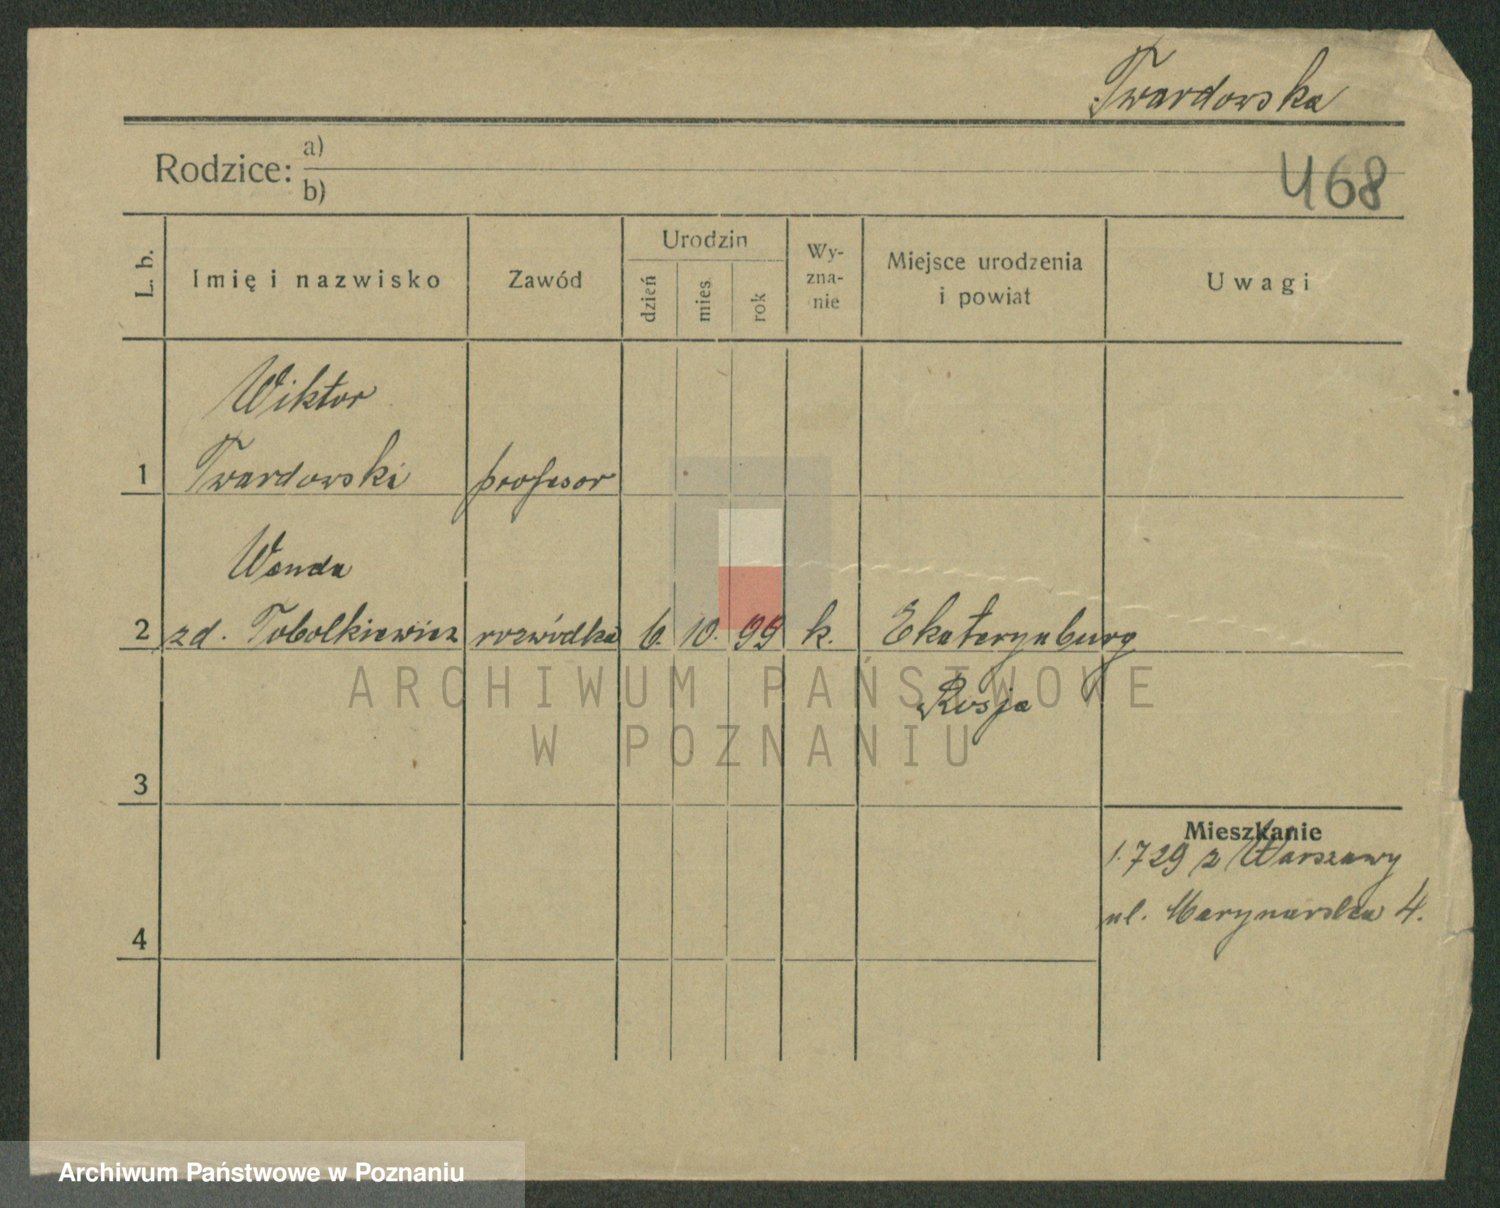 Twardowska
Rodzice: a)
b)
468
L. b.
Imię i nazwisko
Zawód
Urodzin
dzień
mies.
rok
Wy-
zna-
nie
Miejsce urodzenia
i powiat
Uwagi
Wiktor
1 Twardowski profesor
Wanda
2 zd. Tobolkiewicz rozwódka 6. 10. 99 k. Ekaterynburg
Rosja
3
Mieszkanie
1.729 z Warszawy
ul. Marynarska 4.
4
ARCHIWUM PAŃSTWOWE
W POZNANIU
Archiwum Państwowe w Poznaniu